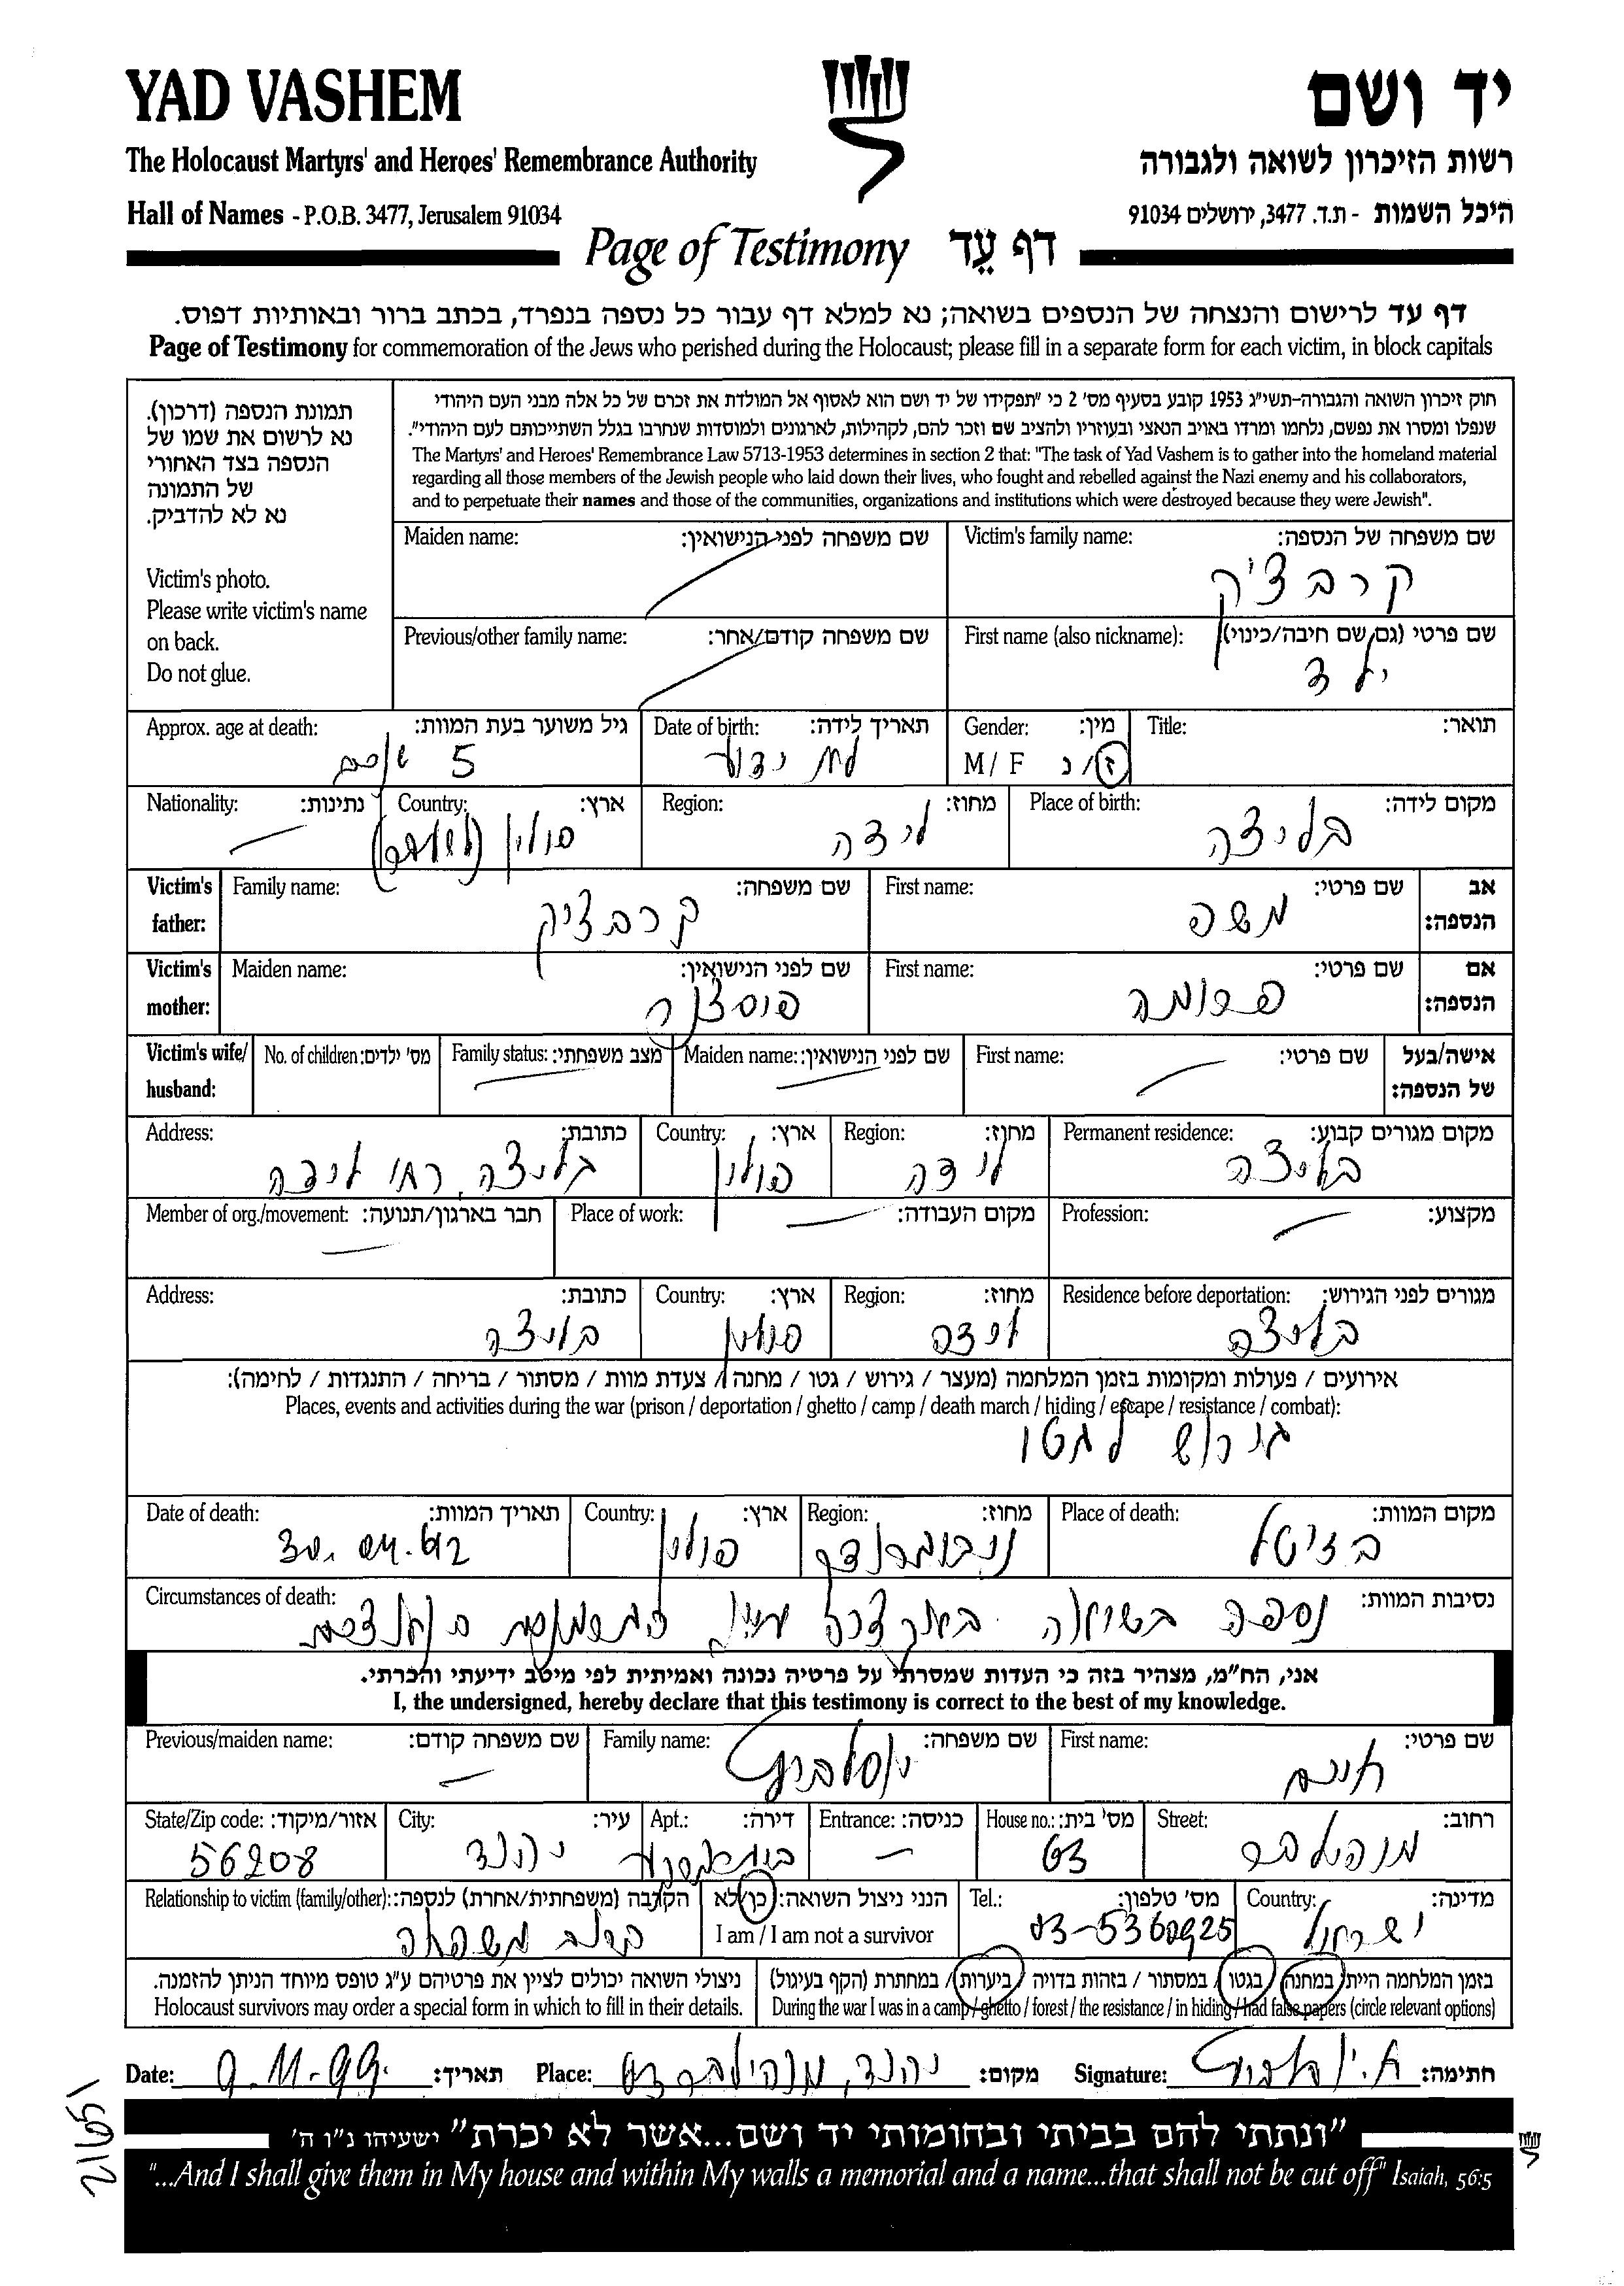 YAD VASHEM
יד ושם
The Holocaust Martyrs' and Heroes' Remembrance Authority
רשות הזיכרון לשואה ולגבורה
Hall of Names - P.O.B. 3477, Jerusalem 91034
היכל השמות - ת.ד. 3477, ירושלים 91034
Page of Testimony דף עֵד
דף עד לרישום והנצחה של הנספים בשואה; נא למלא דף עבור כל נספה בנפרד, בכתב ברור ובאותיות דפוס.
Page of Testimony for commemoration of the Jews who perished during the Holocaust; please fill in a separate form for each victim, in block capitals
תמונת הנספה (דרכון).
נא לרשום את שמו של
הנספה בצד האחורי
של התמונה
נא לא להדביק.
Victim's photo.
Please write victim's name
on back.
Do not glue.
חוק זיכרון השואה והגבורה-תשי"ג 1953 קובע בסעיף מס' 2 כי "תפקידו של יד ושם הוא לאסוף אל המולדת את זכרם של כל אלה מבני העם היהודי
שנפלו ומסרו את נפשם, נלחמו ומרדו באויב הנאצי ובעוזריו ולהציב שם וזכר להם, לקהילות, לארגונים ולמוסדות שנחרבו בגלל השתייכותם לעם היהודי".
The Martyrs' and Heroes' Remembrance Law 5713-1953 determines in section 2 that: "The task of Yad Vashem is to gather into the homeland material
regarding all those members of the Jewish people who laid down their lives, who fought and rebelled against the Nazi enemy and his collaborators,
and to perpetuate their names and those of the communities, organizations and institutions which were destroyed because they were Jewish".
Victim's family name: שם משפחה של הנספה:
קרבציק
Maiden name: שם משפחה לפני הנישואין:
First name (also nickname): שם פרטי (גם שם חיבה/כינוי)
ילד
Previous/other family name: שם משפחה קודם/אחר:
Title: תואר:
Gender: מין:
M / F ז/נ
Date of birth: תאריך לידה:
לא ידוע
Approx. age at death: גיל משוער בעת המוות:
5 שנים
Place of birth: מקום לידה:
בליצה
Region: מחוז:
לידה
Country: ארץ:
פולין
Nationality: נתינות:
Victim's father: אב הנספה:
First name: שם פרטי:
משה
Family name: שם משפחה:
קרבציק
Victim's mother: אם הנספה:
First name: שם פרטי:
פרומה
Maiden name: שם לפני הנישואין:
Victim's wife/ husband: אישה/בעל של הנספה:
First name: שם פרטי:
Maiden name: שם לפני הנישואין:
Family status: מצב משפחתי:
No. of children: מס' ילדים:
Permanent residence: מקום מגורים קבוע:
בליצה
Region: מחוז:
לידה
Country: ארץ:
פולין
Address: כתובת:
בליצה, לידה
Profession: מקצוע:
Place of work: מקום העבודה:
Member of org./movement: חבר בארגון/תנועה:
Residence before deportation: מגורים לפני הגירוש:
בליצה
Region: מחוז:
לידה
Country: ארץ:
פולין
Address: כתובת:
בליצה
אירועים / פעולות ומקומות בזמן המלחמה (מעצר / גירוש / גטו / מחנה / צעדת מוות / מסתור / בריחה / התנגדות / לחימה):
Places, events and activities during the war (prison / deportation / ghetto / camp / death march / hiding / escape / resistance / combat):
גירוש לגטו
Place of death: מקום המוות:
Region: מחוז:
Country: ארץ:
פולין
Date of death: תאריך המוות:
30.04.42
Circumstances of death: נסיבות המוות:
נספה בשואה
אני, הח"מ, מצהיר בזה כי העדות שמסרתי על פרטיה נכונה ואמיתית לפי מיטב ידיעתי והכרתי.
I, the undersigned, hereby declare that this testimony is correct to the best of my knowledge.
First name: שם פרטי:
חיים
Family name: שם משפחה:
Previous/maiden name: שם משפחה קודם:
Street: רחוב:
House no.: מס' בית:
63
Entrance: כניסה:
Apt.: דירה:
City: עיר:
יהוד
State/Zip code: אזור/מיקוד:
56208
Country: מדינה:
ישראל
Tel.: מס' טלפון:
03-5360925
הנני ניצול השואה: כן/לא
I am / I am not a survivor
Relationship to victim (family/other): הקרבה (משפחתית/אחרת) לנספה:
קרוב משפחה
בזמן המלחמה הייתי במחנה/ בגטו / במסתור / בזהות בדויה / ביערות / במחתרת (הקף בעיגול)
During the war I was in a camp / ghetto / forest / the resistance / in hiding / had false papers (circle relevant options)
ניצולי השואה יכולים לציין את פרטיהם ע"ג טופס מיוחד הניתן להזמנה.
Holocaust survivors may order a special form in which to fill in their details.
Date: 9.11.99. תאריך:
Place: יהוד, 63 מקום:
Signature: חתימה:
"ונתתי להם בביתי ובחומותי יד ושם...אשר לא יכרת" ישעיהו נ"ו ה'
"...And I shall give them in My house and within My walls a memorial and a name...that shall not be cut off" Isaiah, 56:5